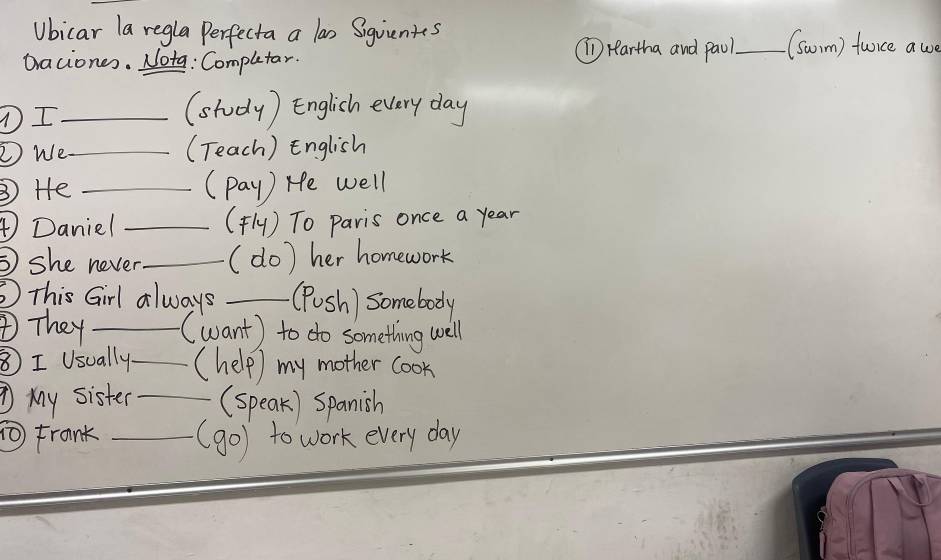 Ubicar la regla Perfecta a las Siguientes
Oraciones. Nota: Completar.
① I ______ (study) English every day
② We ______ (Teach) English
③ He ______ (pay) Me well
④ Daniel ______ (Fly) To paris once a year
⑤ she never ______ (do) her homework
⑥ This Girl always ______ (Push) Somebody
⑦ They ______ (want) to do something well
⑧ I Usually ______ (help) my mother Cook
⑨ My Sister ______ (Speak) Spanish
⑩ Frank ______ (go) to work every day
⑪ Martha and paul ______ (swim) twice a we